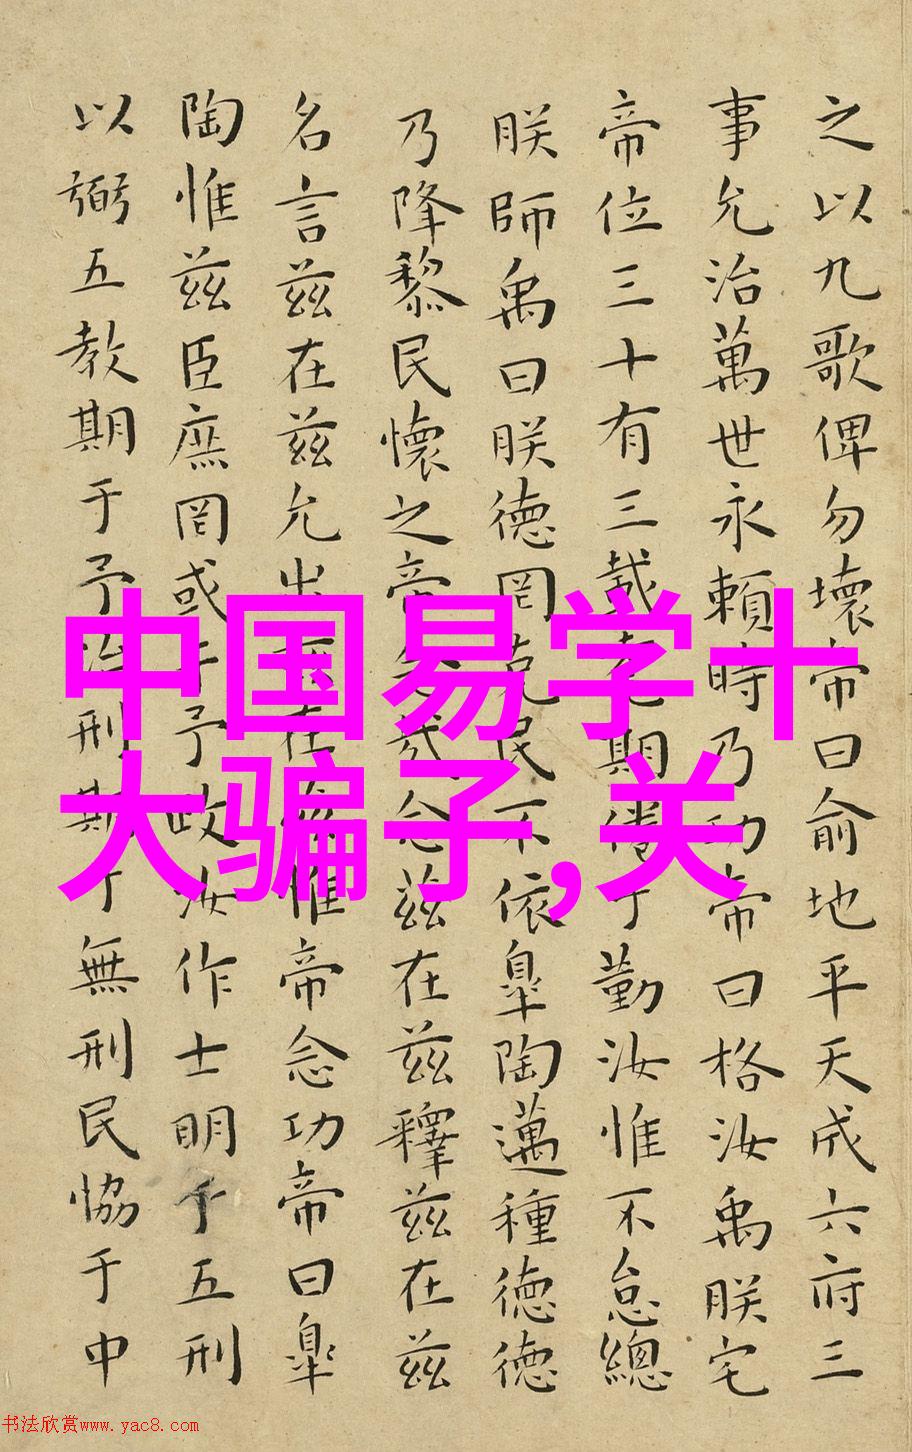 之以九歌俾勿壞帝曰俞地平天成六府三
事允治萬世永賴時乃功帝曰格汝禹朕宅
帝位三十有三載耄期倦于勤汝惟不怠總
朕師禹曰朕德罔克民不依皐陶邁種德德
乃降黎民懷之帝念哉念兹在兹釋兹在兹
名言兹在兹允出兹在兹惟帝念功帝曰皐
陶惟兹臣庶罔或干予政汝作士明于五刑
以弼五教期于予治刑期于無刑民恊于中
中国易学十
大骗子,关
书法欣赏www.yac8.com